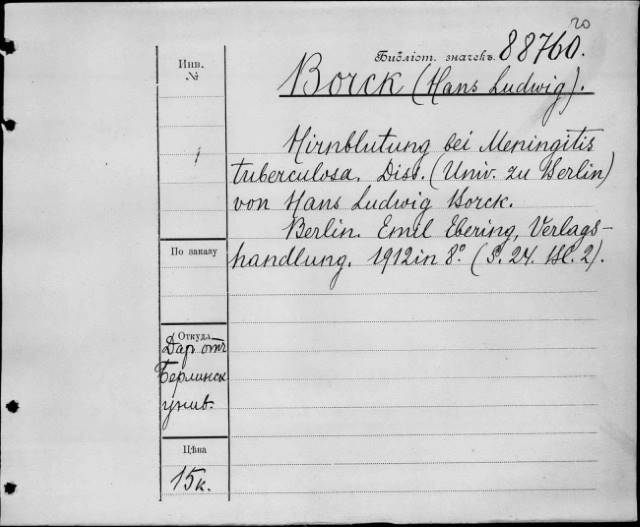 20
Библіот. значекъ. 88760.
Инв.
№
Borck (Hans Ludwig).
Hirnblutung bei Meningitis
1
tuberculosa. Diss. (Univ. zu Berlin)
von Hans Ludwig Borck.
Berlin. Emil Ebering, Verlags-
По заказу
handlung. 1912 in 8º (S. 24. Bl. 2).
Откуда
Даръ отъ
Берлинск
унив.
Цѣна
15к.